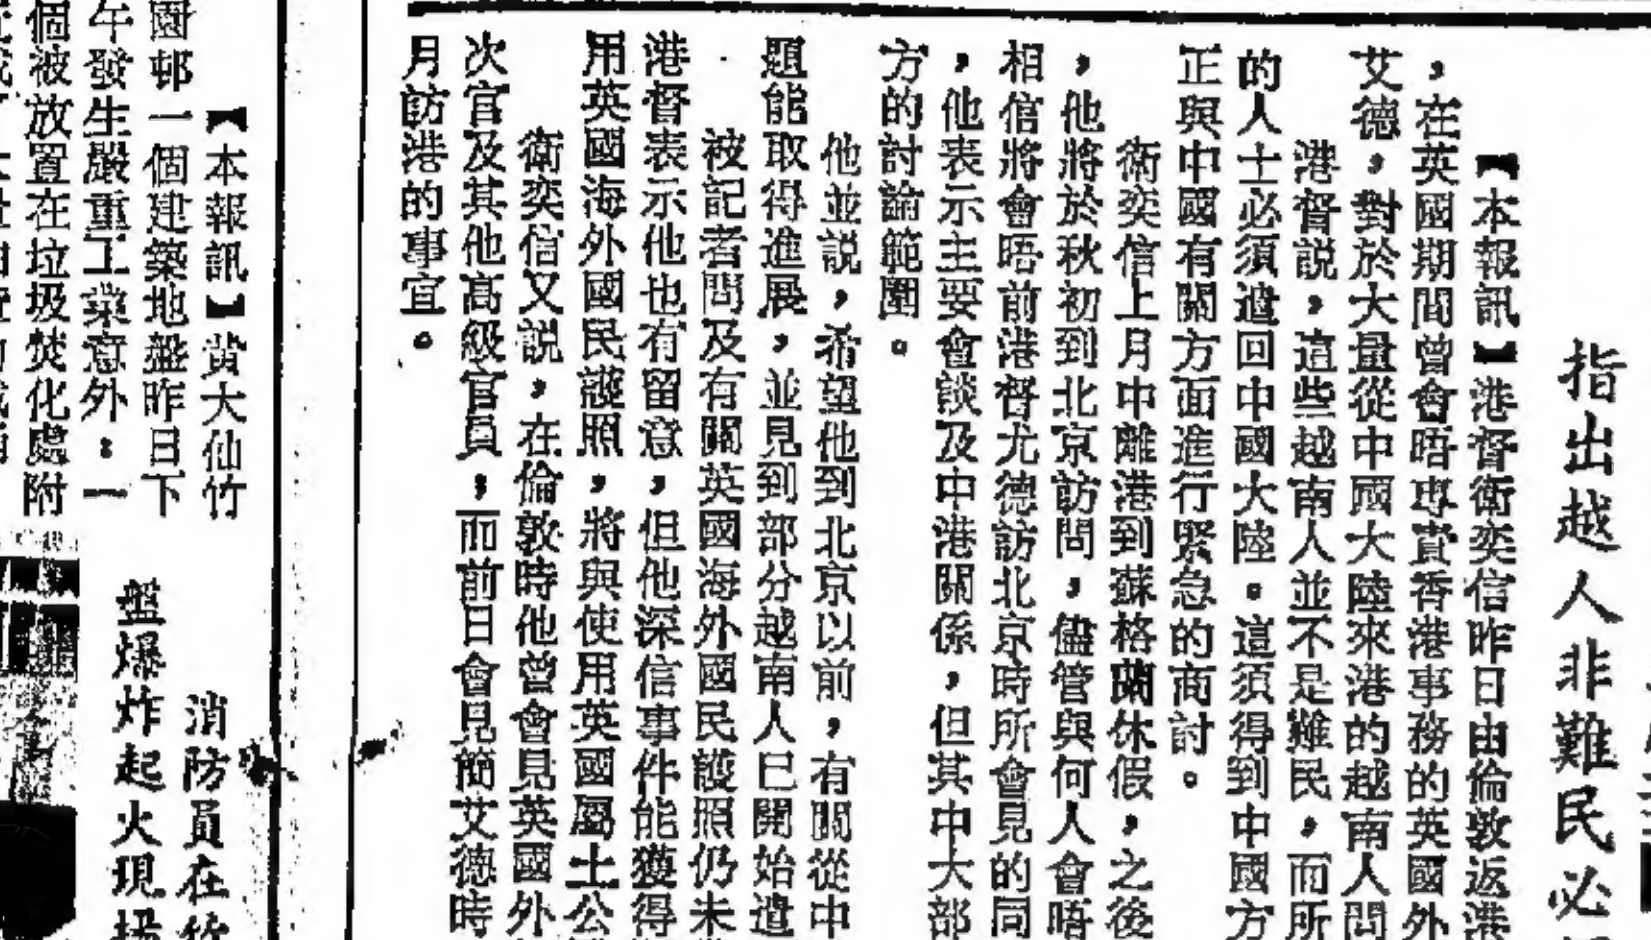 指出越人非難民必
【本報訊】港督衛奕信昨日由倫敦返港
，在英國期間曾會晤專責香港事務的英國外
艾德，對於大量從中國大陸來港的越南人問
港督説，這些越南人並不是難民，而所
的人士必須遣回中國大陸。這須得到中國方
正與中國有關方面進行緊急的商討。
衛奕信上月中離港到蘇格蘭休假，之後
，他將於秋初到北京訪問，儘管與何人會晤
相信將會晤前港督尤德訪北京時所會見的同
，他表示主要會談及中港關係，但其中大部
方的討論範圍。
他並説，希望他到北京以前，有關從中
題能取得進展，並見到部分越南人已開始遣
被記者問及有關英國海外國民護照仍未
港督表示他也有留意，但他深信事件能獲得
用英國海外國民護照，將與使用英國屬土公
衛奕信又説，在倫敦時他曾會見英國外
次官及其他高級官員，而前日會見簡艾德時
月訪港的事宜。
【本報訊】黃大仙竹
園邨一個建築地盤昨日下
午發生嚴重工業意外：一
個被放置在垃圾焚化處附
消防員在竹
盤爆炸起火現場